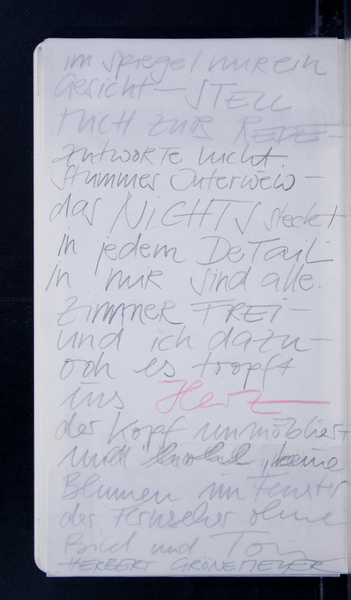 im Spiegel nur ein
Gesicht – STELL
mich zur REDE –
antworte nicht
stummes Interwiew –
das NICHTS steckt
in jedem DETAIL
in mir sind alle
ZIMMER FREI –
und ich dazu –
ooh es tropft
ins Herz
der Kopf unmöbliert
und hohl, keine
Blumen im Fenster
der Fernseher ohne
Bild und Ton
HERBERT GRÖNEMEYER